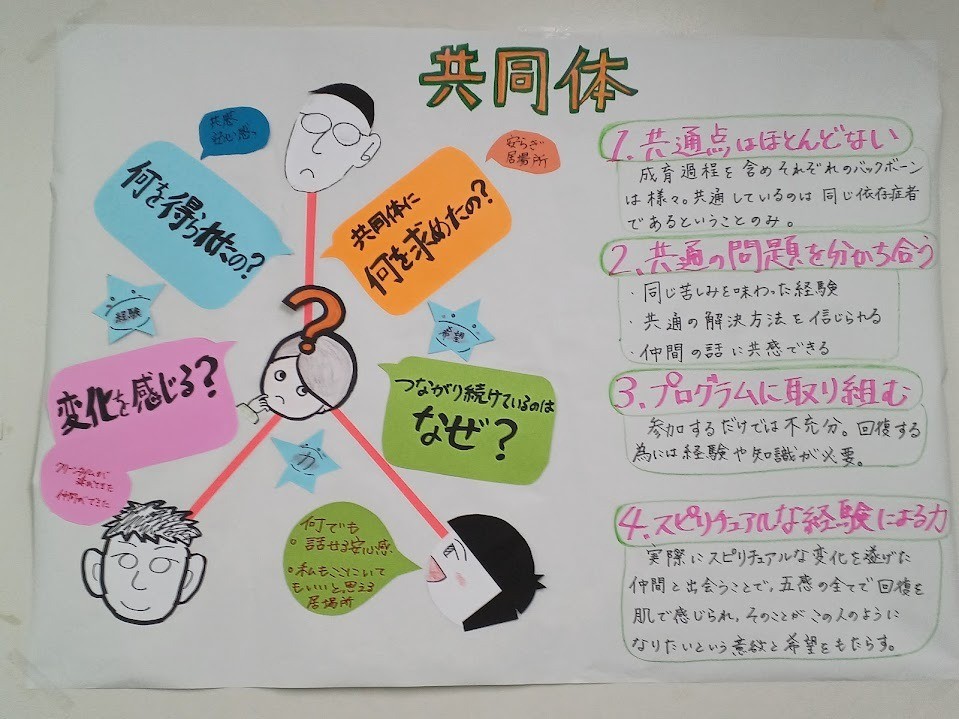 共同体
共感
安心感
安らぎ
居場所
何を得られたの?
共同体に
何を求めたの?
経験
希望
変化を感じる?
つながり続けているのは
なぜ?
力
クリーンタイムが
仲間ができた
何でも
・話せる安心感
・私もここにいて
もいいと思える
居場所
1.共通点はほとんどない
成育過程を含めそれぞれのバックボーン
は様々。共通しているのは同じ依存症者
であるということのみ。
2.共通の問題を分かち合う
・同じ苦しみを味わった経験
・共通の解決方法を信じられる
・仲間の話に共感できる
3.プログラムに取り組む
参加するだけでは不充分。回復する
為には経験や知識が必要。
4.スピリチュアルな経験による力
実際にスピリチュアルな変化を遂げた
仲間と出会うことで、五感の全てで回復を
肌で感じられ、そのことがこの人のように
なりたいという意欲と希望をもたらす。